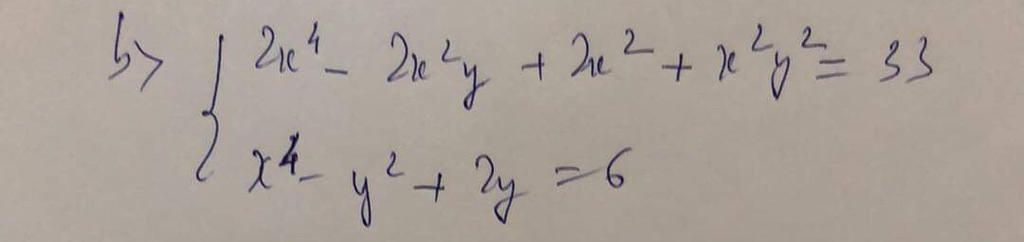 b> { 2x⁴ - 2x²y + 2x² + x²y² = 33
x⁴ - y² + 2y = 6